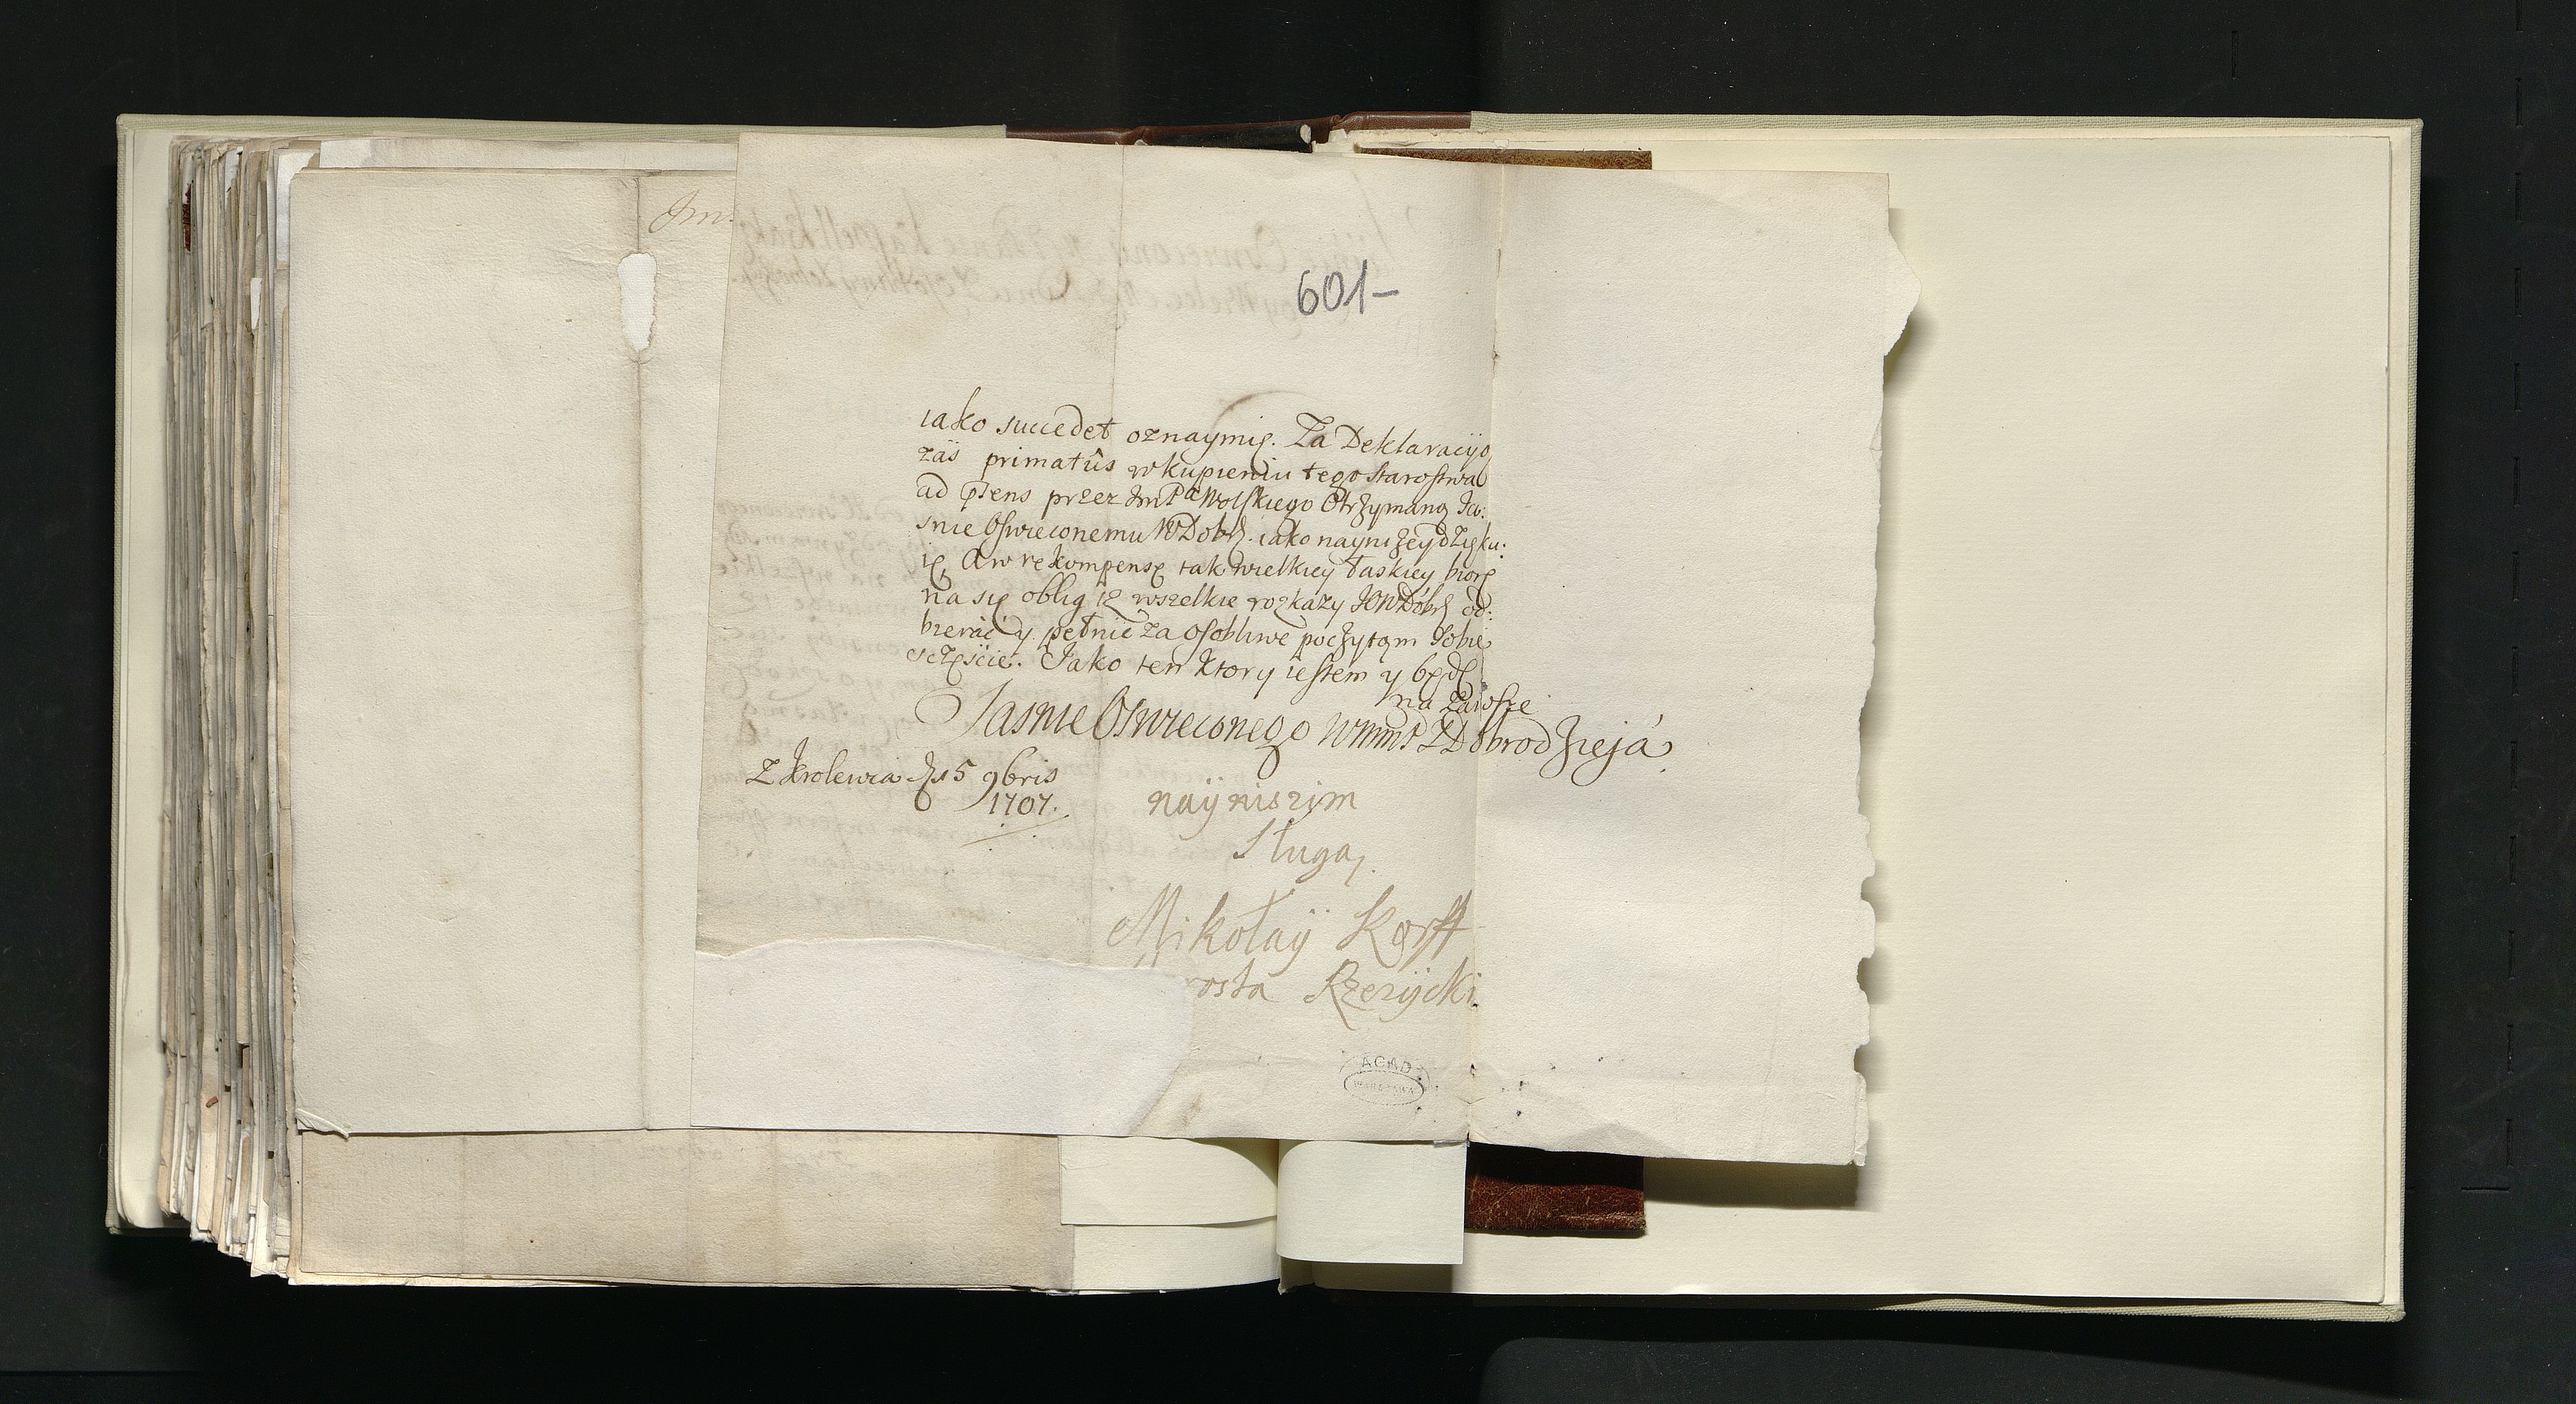 Jm.
601-
iako succedet oznaymię. Za Deklaracyją
záś primatûs w kupieniu tego starostwa
ad psens przez JmPa Wolskiego Otrzymaną Ja:
snie Oswieconemu WDobr. iako naynizey dzięku:
ię, A w rekompensę tak wielkiey łaskiey biorę
na się oblig iz wszelkie rozkazy JOWDobr od:
bierać y pełnić za osobliwe poczytam sobie
sczęście. Jako ten ktory iestem y będę
na Zawsze
Jasnie Oswieconego WmmPZDobrodzieja
Z Krolewca d. 15 9bris
1707.
nayniszim
Sługą,
Mikołaÿ Korff
rosta Rzeżÿcki.
AGAD
WARSZAWA